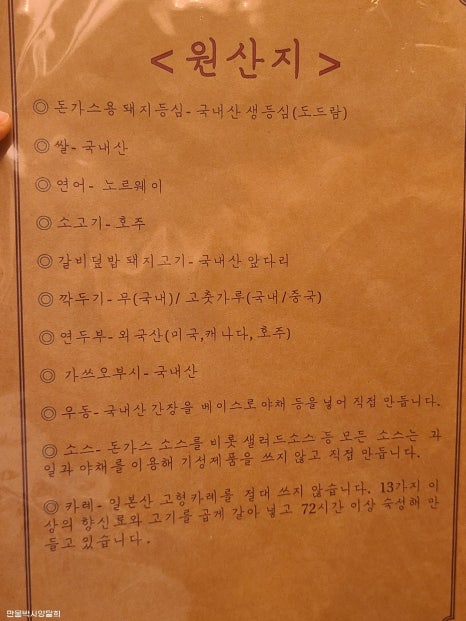 < 원산지 >
◎ 돈가스용 돼지등심- 국내산 생등심(도드람)
◎ 쌀- 국내산
◎ 연어- 노르웨이
◎ 소고기- 호주
◎ 갈비덮밥 돼지고기- 국내산 앞다리
◎ 깍두기- 무(국내)/ 고춧가루(국내/중국)
◎ 연두부- 외국산(미국,캐나다, 호주)
◎ 가쓰오부시- 국내산
◎ 우동- 국내산 간장을 베이스로 야채 등을 넣어 직접 만듭니다.
◎ 소스- 돈가스 소스를 비롯 샐러드소스 등 모든 소스는 과
일과 야채를 이용해 기성제품을 쓰지 않고 직접 만듭니다.
◎ 카레- 일본산 고형카레를 절대 쓰지 않습니다. 13가지 이
상의 향신료와 고기를 곱게 갈아 넣고 72시간 이상 숙성해 만
들고 있습니다.
만물박사양달희